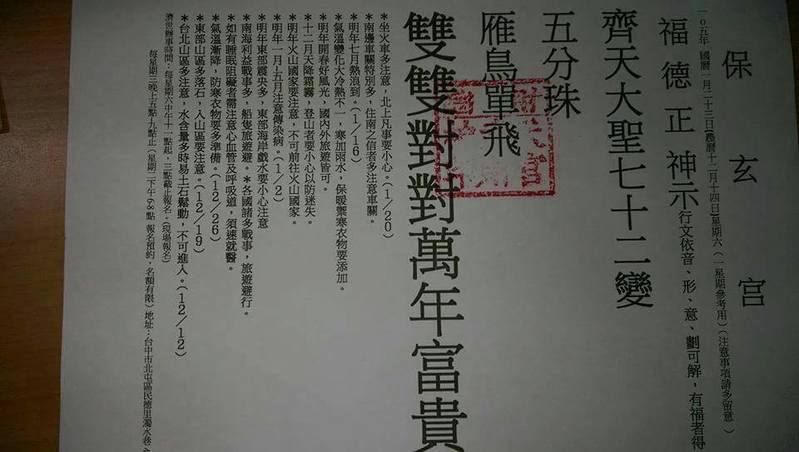 保玄宮
一○五年 國曆一月二十三日(農曆十二月十四日)星期六(一星期參考用)(注意事項請多留意)
福德正神示 行文依音、形、意、劃可解,有福者得
齊天大聖七十二變
五分珠
雁鳥單飛
雙雙對對萬年富貴
＊坐火車多注意,北上凡事要小心。(1/20)
＊南邊車關特別多,住南之信者多注意車關。
＊明年七月熱浪到。(1/16)
＊氣溫變化大冷熱不一,寒加雨水,保暖禦寒衣物要添加。
＊明年開春好風光,國內外旅遊皆可。
＊十二月天降霜霧,登山者要小心以防迷失。
＊明年火山國家要注意,不可前往火山國家。
＊明年一月十五月注意傳染病。(1/2)
＊明年東部震央多,東部海岸戲水要小心注意
＊南海利益戰事多,船隻旅遊避。＊各國諸多戰事,旅遊避行。
＊如有睡眠阻礙者需注意心血管及呼吸道,須速就醫。
＊氣溫漸降,防寒衣物要多準備。(12/26)
＊東部山區多落石,入山區要注意。(12/19)
＊台北山區多注意,水含量多時易土石鬆動,不可進入。(12/12)
濟世辦事時間:每星期六中午十一點起,三點截止報名。(現場報名)
每星期三晚上五點~九點止(星期二下午6-8點 報名預約,名額有限)地址:台中市北屯區民德里濁水巷